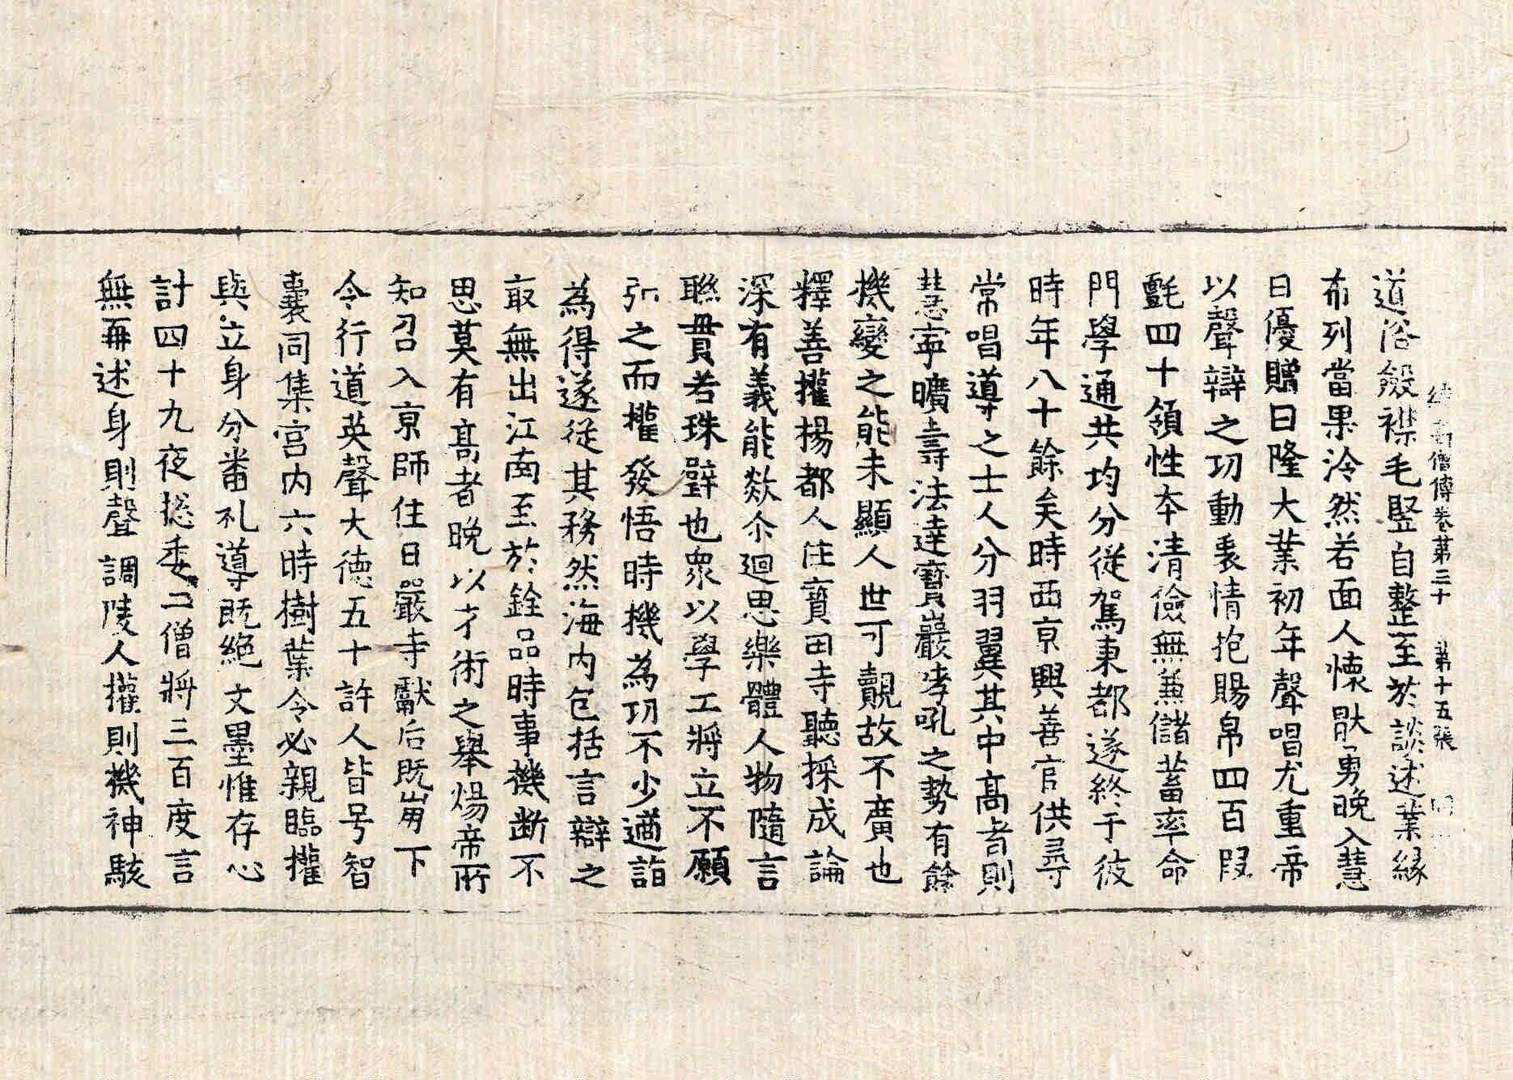 續高僧傳卷第三十　第十五張
道俗斂襟毛竪自整至於談述業緣
布列當果泠然若面人懐猒勇晚入慧
日優贈日隆大業初年聲唱尤重帝
以聲辯之功動衷情抱賜帛四百叚
氈四十領性夲清儉無兼儲蓄率命
門學通共均分從駕東都遂終于彼
時年八十餘矣時西亰興善官供尋
常唱導之士人分羽翼其中髙者則
慧寧曠壽法達寶巖哮吼之勢有餘
機變之能未顯人世可觀故不廣也
釋善權揚都人住寳田寺聽採成論
深有義能歘尒迴思樂體人物隨言
聮貫若珠璧也衆以學工將立不願
弘之而權發悟時機為功不少適詣
為得遂從其務然海内包括言辯之
㝡無出江南至於銓品時事機断不
思莫有髙者晚以才術之舉煬帝所
知召入亰師住日嚴寺獻后既崩下
令行道英聲大德五十許人皆号智
囊同集宫内六時樹葉令必親臨權
與立身分番礼導既絶文墨惟存心
計四十九夜揔委二僧將三百度言
無再述身則聲調陵人權則機神駭